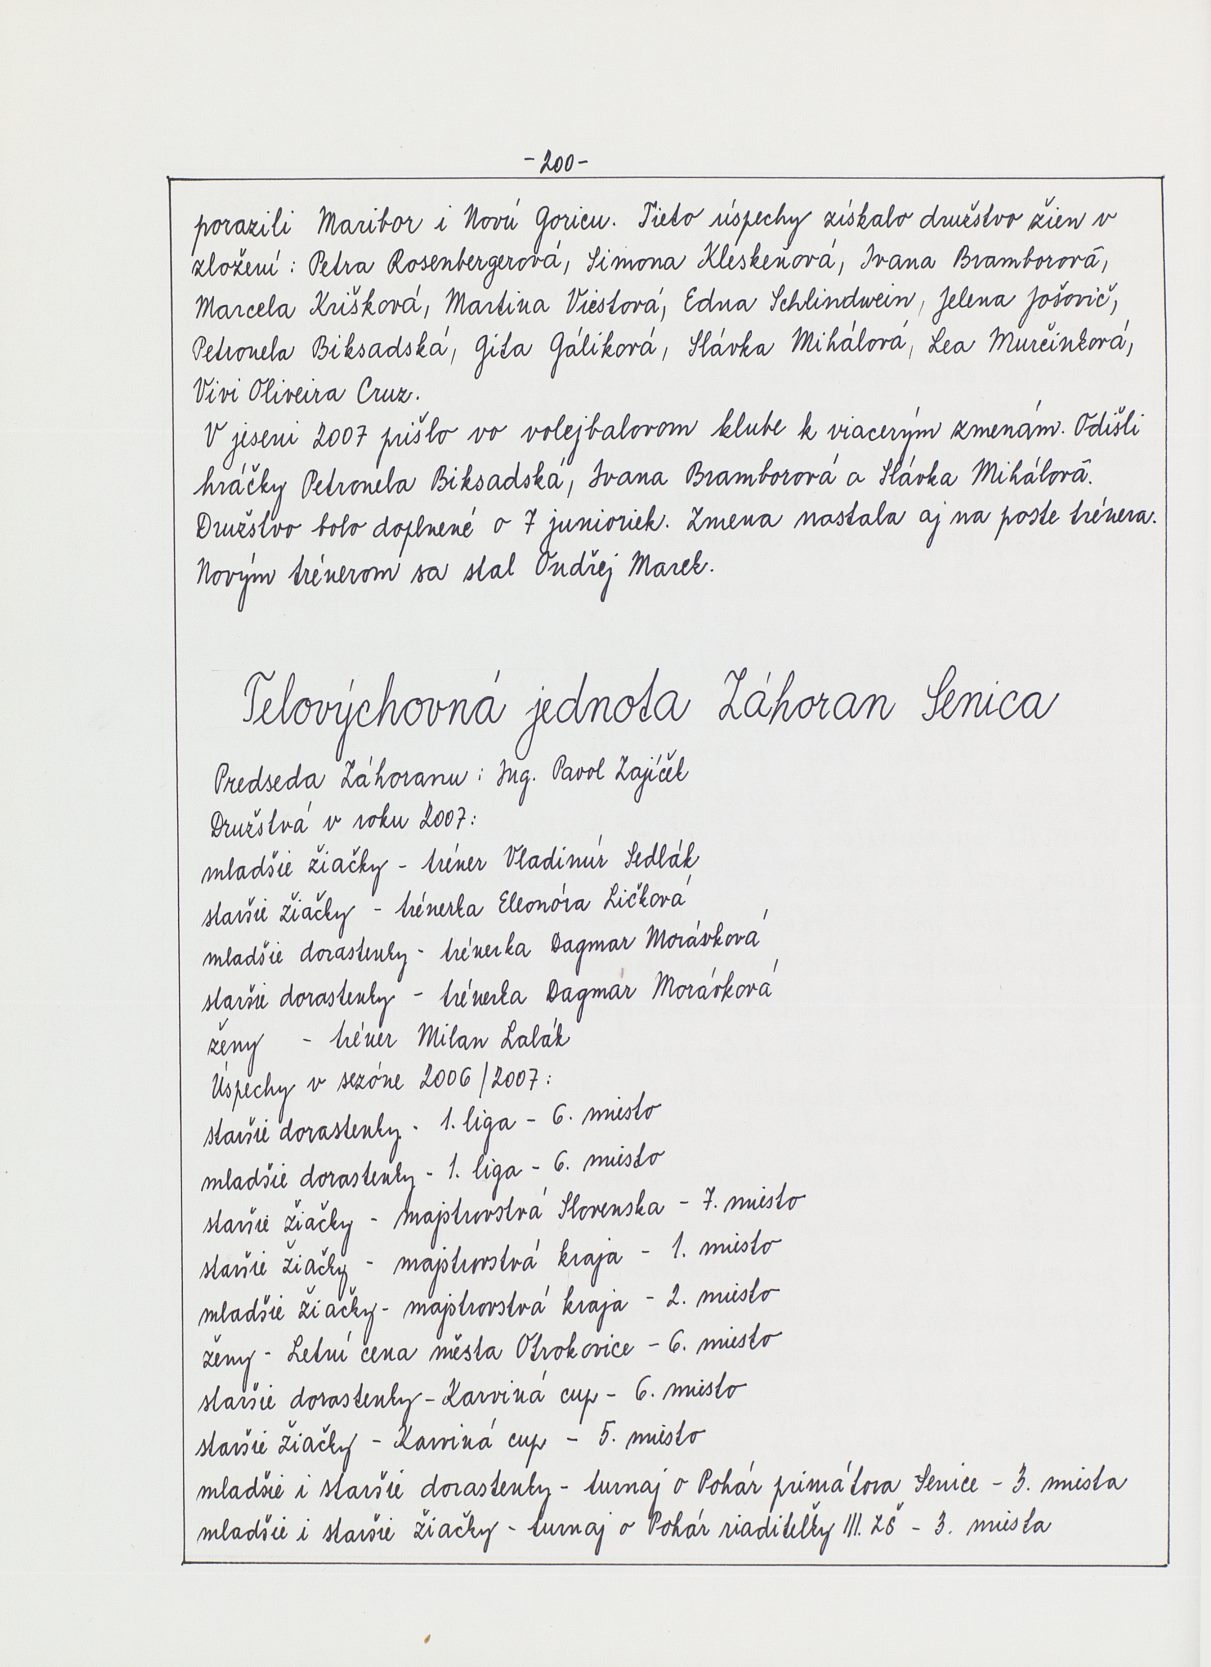 -200-
porazili Maribor i Novú Goricu. Tieto úspechy získalo družstvo žien v
zložení: Petra Rosenbergerová, Simona Kleskeňová, Ivana Bramborová,
Marcela Krišková, Martina Viestová, Edna Schlindwein, Jelena Jošovič,
Petronela Biksadská, Gita Gáliková, Slávka Mihálová, Lea Murčinková,
Vivi Oliveira Cruz.
V jeseni 2007 prišlo vo volejbalovom klube k viacerým zmenám. Odišli
hráčky Petronela Biksadská, Ivana Bramborová a Slávka Mihálová.
Družstvo bolo doplnené o 7 junioriek. Zmena nastala aj na poste trénera.
Novým trénerom sa stal Ondřej Marek.
Telovýchovná jednota Záhoran Senica
Predseda Záhoranu: Ing. Pavol Zajíček
Družstvá v roku 2007:
mladšie žiačky - tréner Vladimír Sedlák
staršie žiačky - trénerka Eleonóra Ličková
mladšie dorastenky - trénerka Dagmar Morávková
staršie dorastenky - trénerka Dagmar Morávková
ženy - tréner Milan Lalák
Úspechy v sezóne 2006/2007:
staršie dorastenky - 1. liga - 6. miesto
mladšie dorastenky - 1. liga - 6. miesto
staršie žiačky - majstrovstvá Slovenska - 7. miesto
staršie žiačky - majstrovstvá kraja - 1. miesto
mladšie žiačky - majstrovstvá kraja - 2. miesto
ženy - Letní cena města Otrokovice - 6. miesto
staršie dorastenky - Karviná cup - 6. miesto
staršie žiačky - Karviná cup - 5. miesto
mladšie i staršie dorastenky - turnaj o Pohár primátora Senice - 3. miesta
mladšie i staršie žiačky - turnaj o Pohár riaditeľky III. ZŠ - 3. miesta